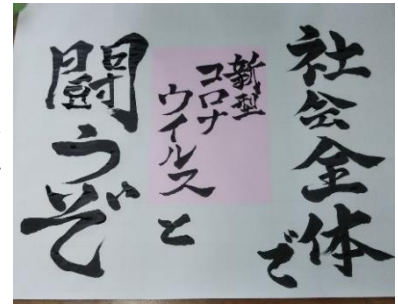 社会全体で
新型
コロナ
ウイルス
と
闘うぞ